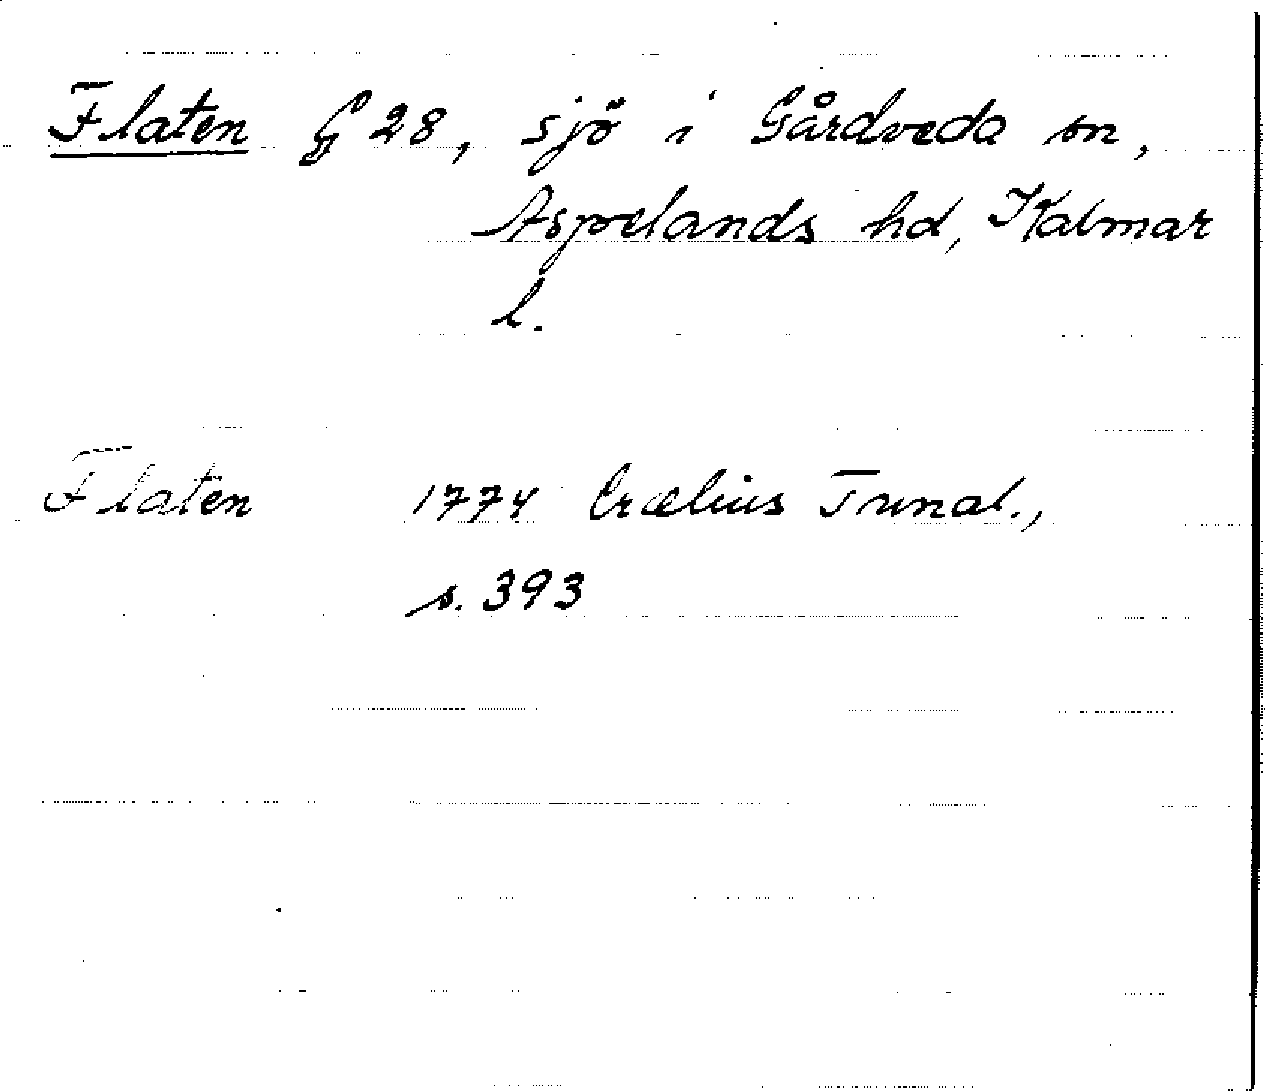 Flaten G 28, sjö i Gårdveda sn,
Aspelands hd, Kalmar
l.
Flaten 1774 Cræelius Tunal.,
s. 393